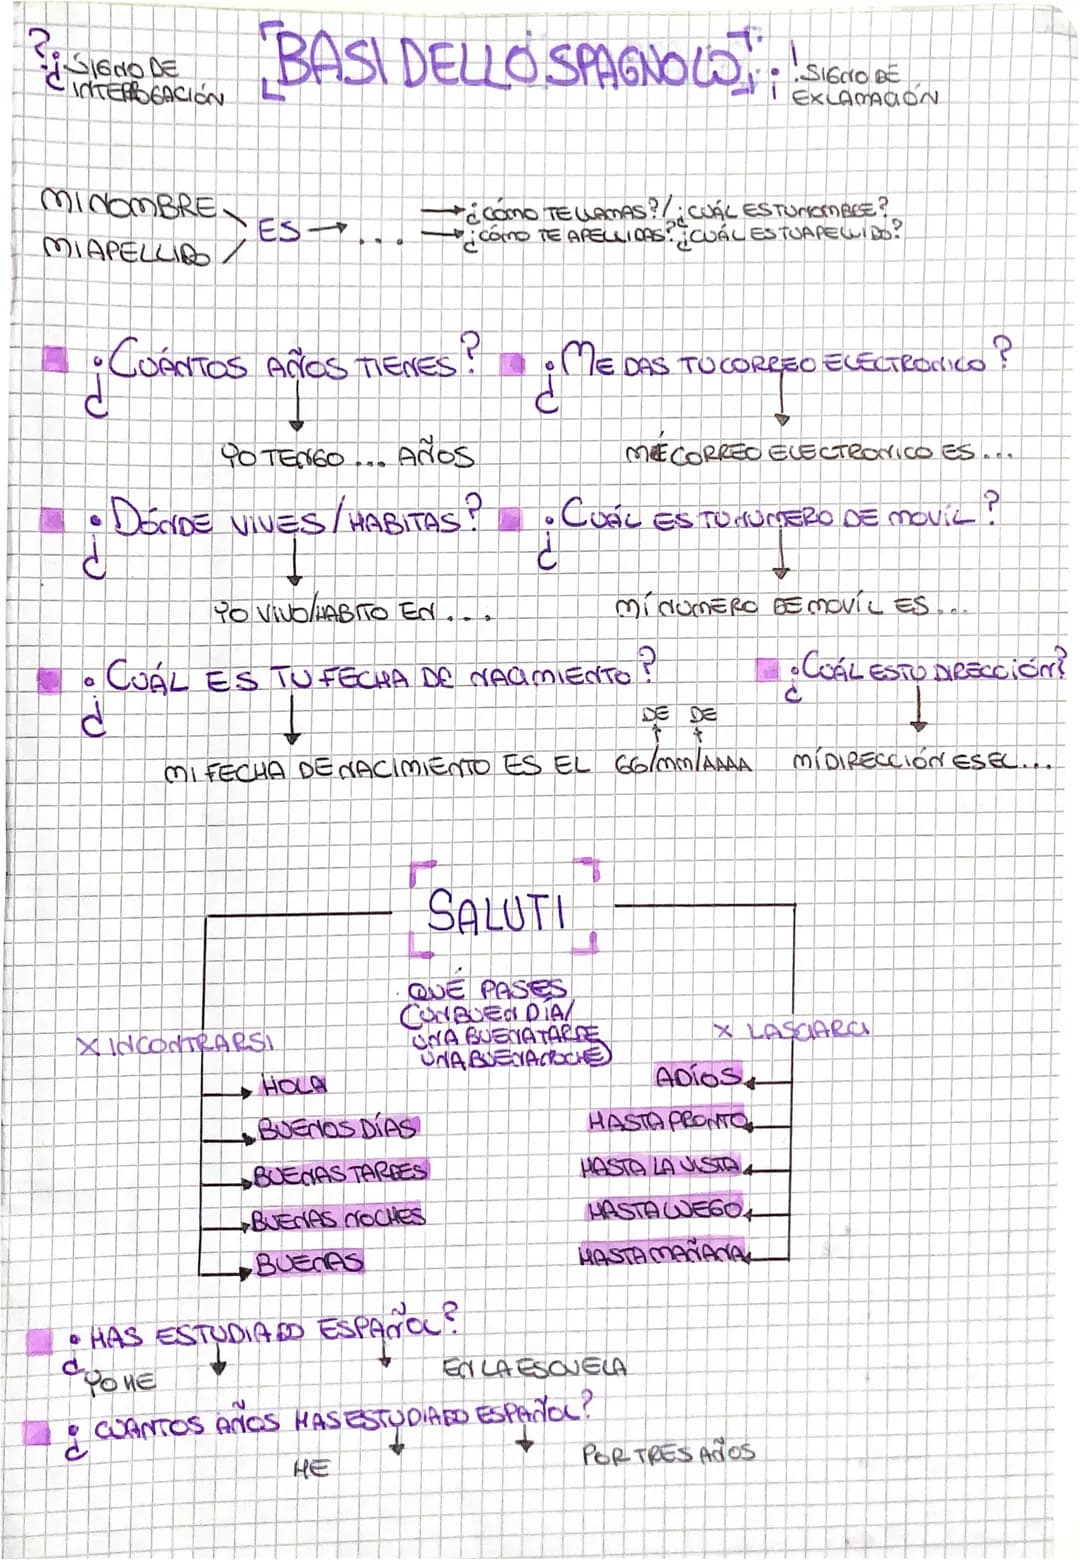 ? ¿ SIGNO DE INTERROGACIÓN
BASI DELLO SPAGNOLO
! ¡ SIGNO DE EXCLAMACIÓN
MI NOMBRE
MI APELLIDO
ES → ...
→ ¿CÓMO TE LLAMAS?/¿CUÁL ES TU NOMBRE?
→ ¿CÓMO TE APELLIDAS? ¿CUÁL ES TU APELLIDO?
¿CUÁNTOS AÑOS TIENES?
¿ME DAS TU CORREO ELECTRONICO?
YO TENGO ... AÑOS
CORREO ELECTRONICO ES ...
¿DÓNDE VIVES/HABITAS?
¿CUÁL ES TU NUMERO DE MOVÍL?
YO VIVO/HABITO EN ...
MÍ NUMERO DE MOVÍL ES ...
¿CUÁL ES TU FECHA DE NACIMIENTO?
¿CUÁL ES TU DIRECCIÓN?
DE DE
MI FECHA DE NACIMIENTO ES EL GG/MM/AAAA
MÍ DIRECCIÓN ES EL ...
SALUTI
QUÉ PASES
(UN BUEN DÍA/
UNA BUENA TARDE
UNA BUENA NOCHE)
X INCONTRARSI
X LASCIARCI
HOLA
ADÍOS
BUENOS DÍAS
HASTA PRONTO
BUENAS TARDES
HASTA LA VISTA
BUENAS NOCHES
HASTA LUEGO
BUENAS
HASTA MAÑANA
¿HAS ESTUDIADO ESPAÑOL?
YO HE
EN LA ESCUELA
¿CUANTOS AÑOS HAS ESTUDIADO ESPAÑOL?
HE
POR TRES AÑOS